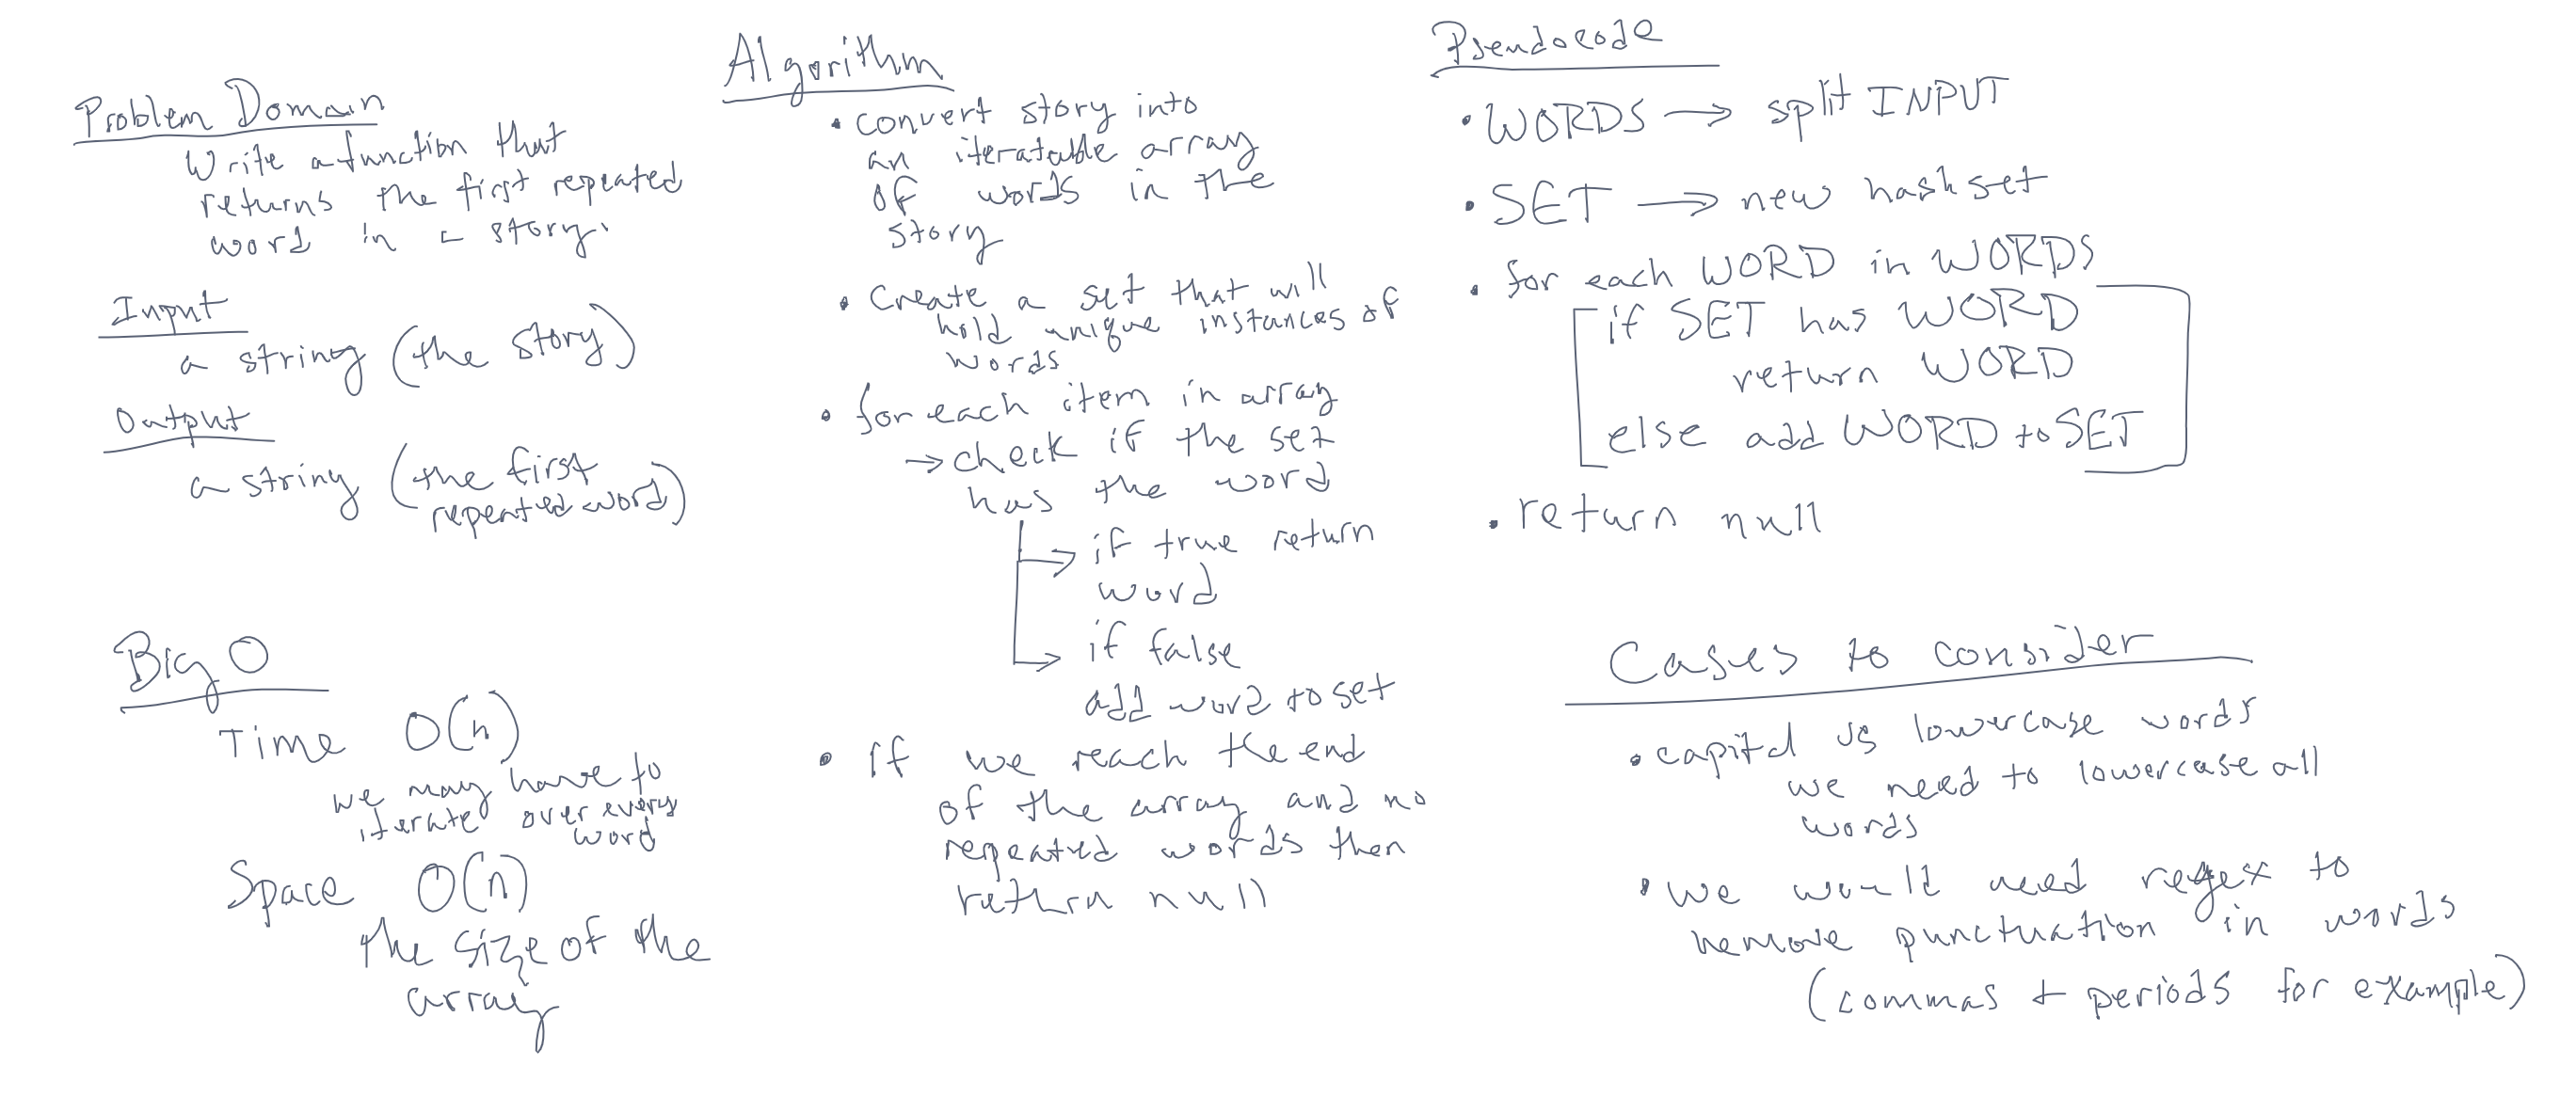 Problem Domain
Write a function that
returns the first repeated
word in a story.
Input
a string (the story)
Output
a string (the first
repeated word)
Big O
Time O(n)
we may have to
iterate over every
word
Space O(n)
the size of the
array
Algorithm
• convert story into
an iteratable array
of words in the
story
• Create a set that will
hold unique instances of
words
• for each item in array
→ check if the set
has the word
→ if true return
word
→ if false
add word to set
• If we reach the end
of the array and no
repeated words then
return null
Pseudocode
• WORDS → split INPUT
• SET → new hashset
• for each WORD in WORDS
if SET has WORD
return WORD
else add WORD to SET
• return null
Cases to consider
• capital vs lowercase words
we need to lowercase all
words
• we would need regex to
remove punctuation in words
(commas + periods for example)